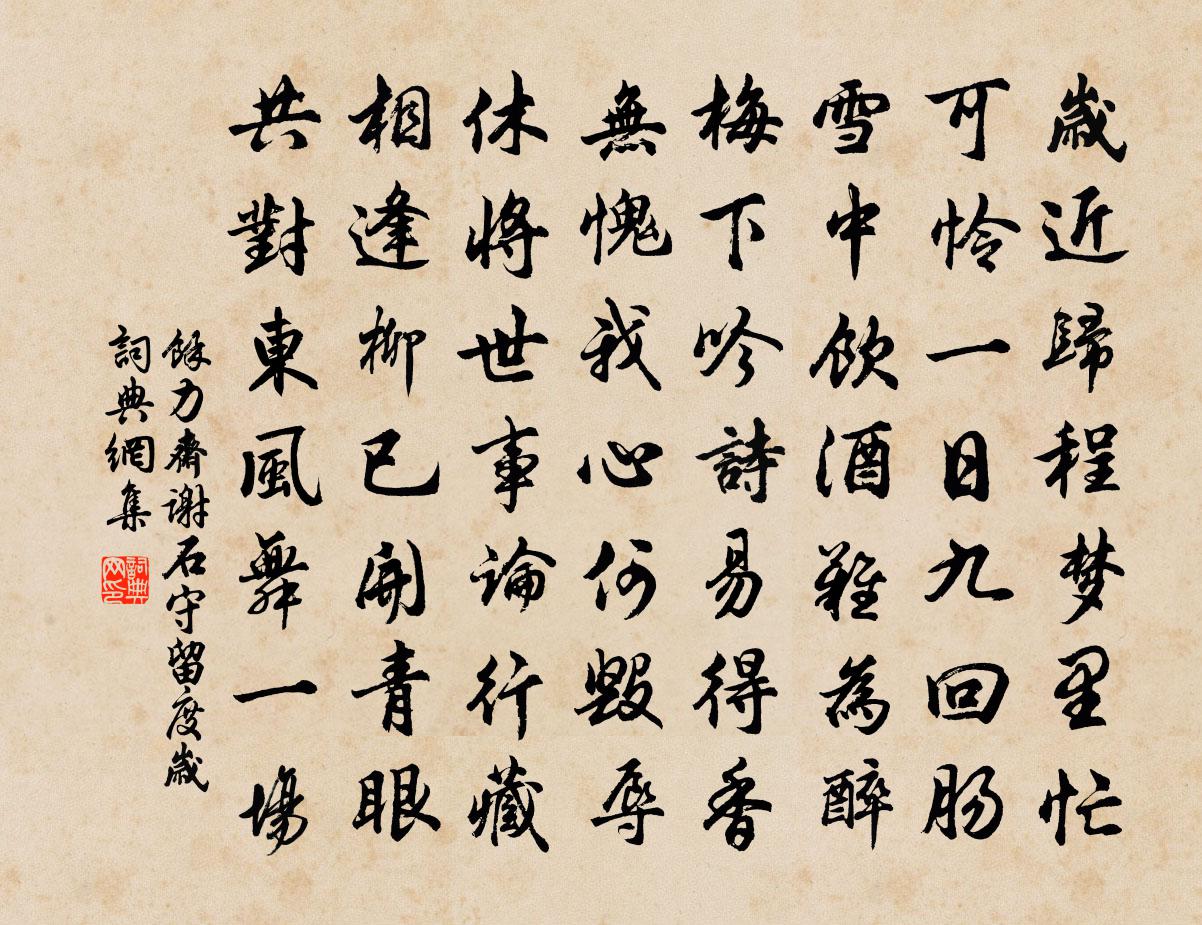 歲近歸程梦里忙
可怜一日九回肠
雪中飲酒難為醉
梅下吟詩易得香
無愧我心何毀辱
休將世事論行藏
相逢柳已開青眼
共對東風舞一場
餘力齋謝石守留度歲
詞典網集
詞典网印